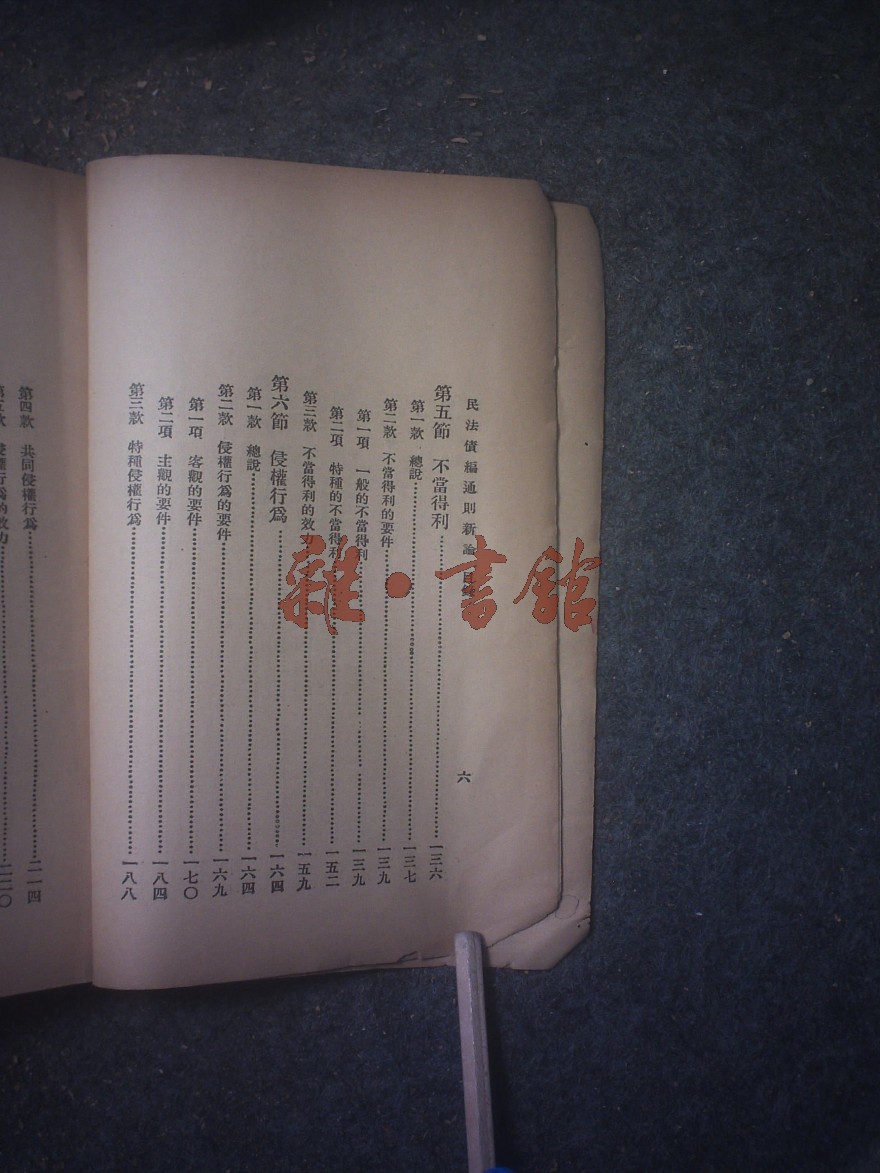 民法債編通則新論 目錄 六
第五節 不當得利 一三六
第一款 總說 一三七
第二款 不當得利的要件 一三九
第一項 一般的不當得利 一三九
第二項 特種的不當得利 一五二
第三款 不當得利的效力 一五九
第六節 侵權行爲 一六四
第一款 總說 一六四
第二款 侵權行爲的要件 一六九
第一項 客觀的要件 一七〇
第二項 主觀的要件 一八四
第三款 特種侵權行爲 一八八
第四款 共同侵權行爲 二一四
第五款 侵權行爲的效力 二二〇
雜·書館